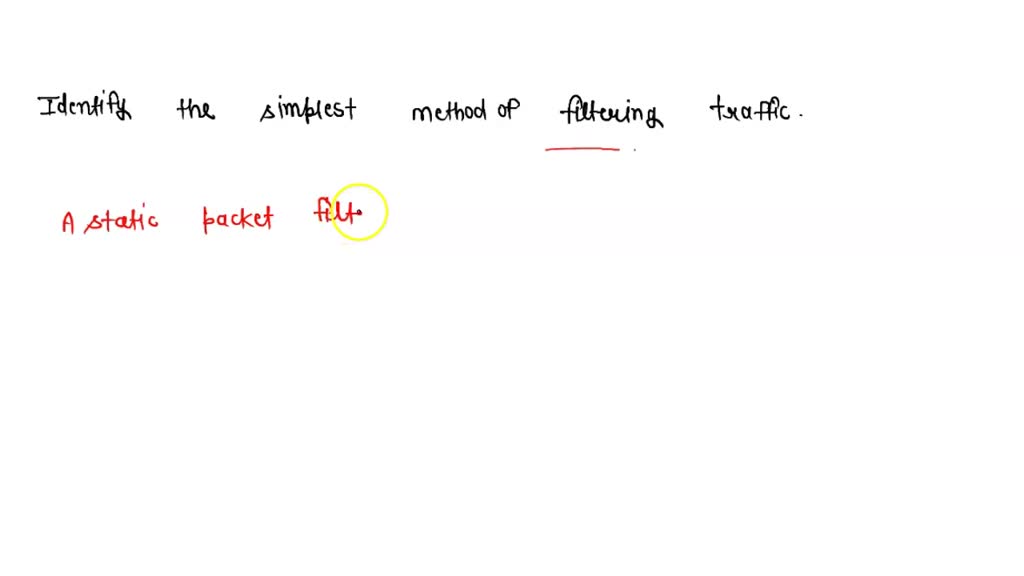 Identify the simplest method of filtering traffic.
A static packet filt